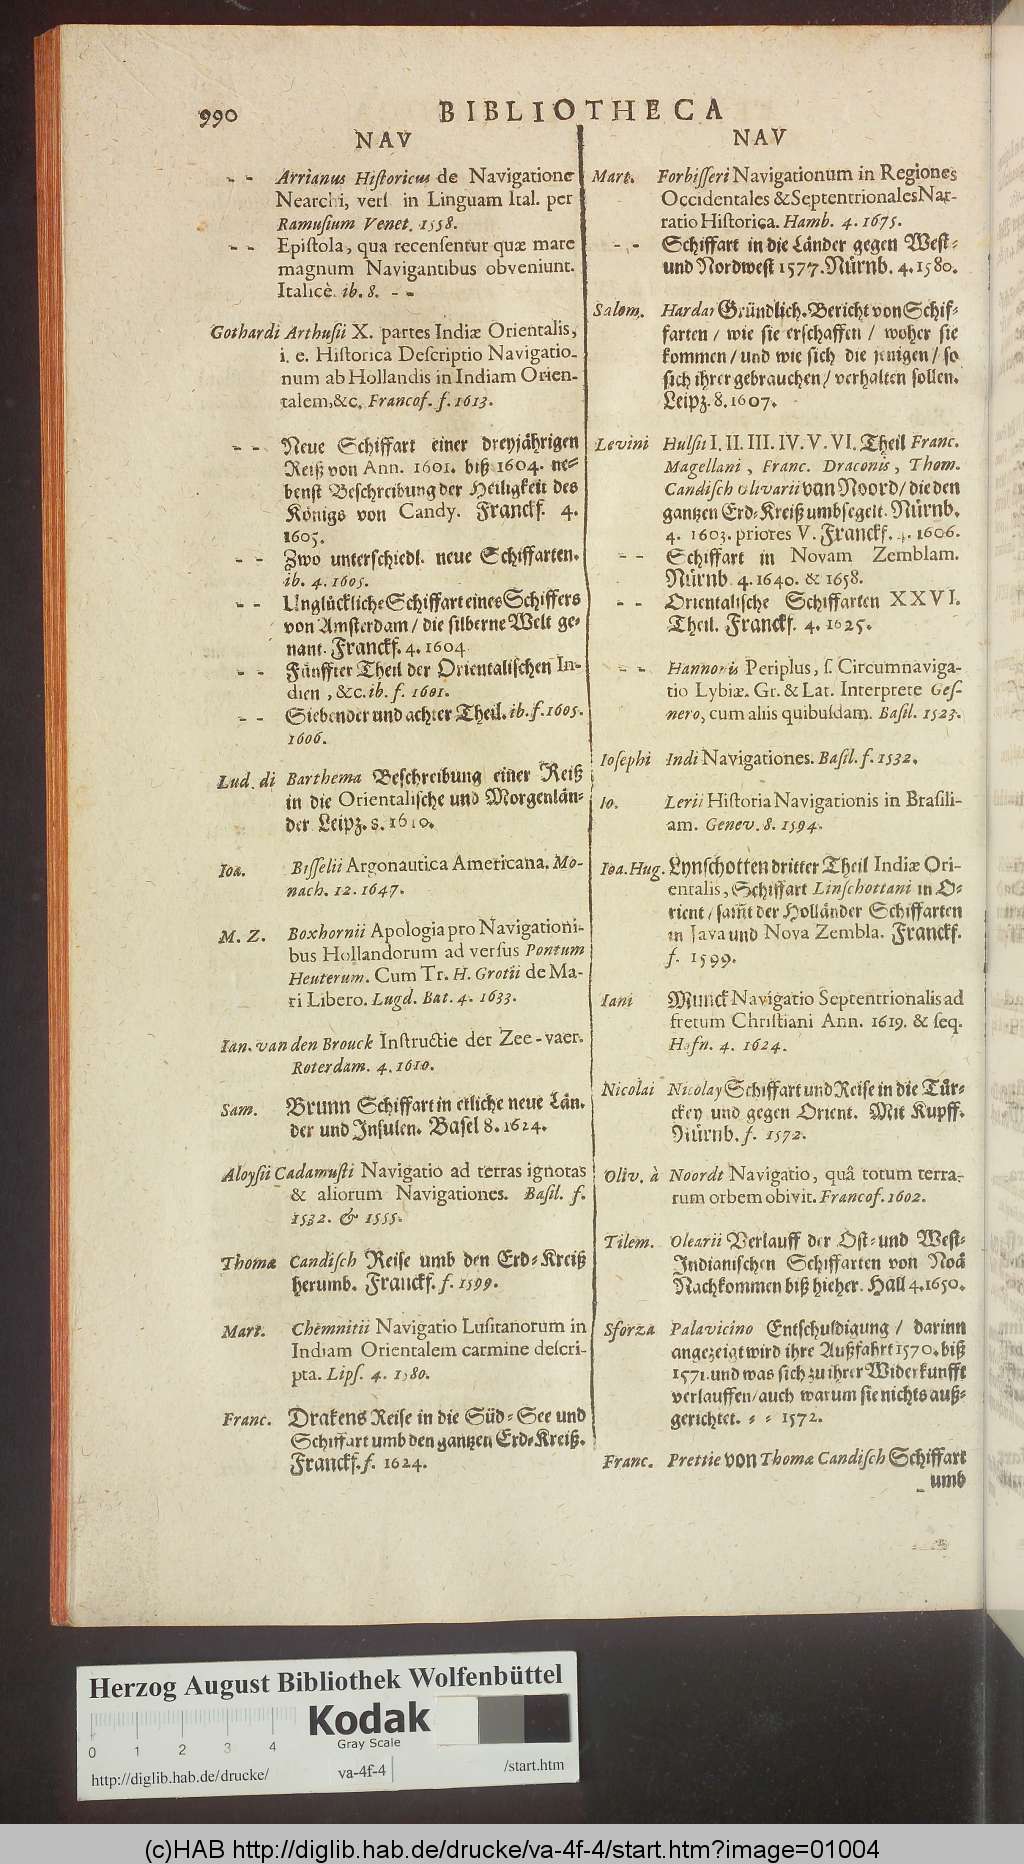 990
BIBLIOTHECA
NAV
- - Arrianus Historicus de Navigatione
Nearchi, vers. in Linguam Ital. per
Ramusium Venet. 1558.
- - Epistola, qua recensentur quæ mare
magnum Navigantibus obveniunt.
Italicè. ib. 8. - -
Gothardi Arthusii X. partes Indiæ Orientalis,
i. e. Historica Descriptio Navigatio-
num ab Hollandis in Indiam Orien-
talem, &c. Francof. f. 1613.
- - Neue Schiffart einer dreyjährigen
Reiß von Ann. 1601. biß 1604. ne-
benst Beschreibung der Heiligkeit des
Königs von Candy. Franckf. 4.
1605.
- - Zwo unterschiedl. neue Schiffarten.
ib. 4. 1605.
- - Unglückliche Schiffart eines Schiffers
von Amsterdam / die silberne Welt ge-
nant. Franckf. 4. 1604
- - Fünffter Theil der Orientalischen In-
dien, &c. ib. f. 1601.
- - Siebender und achter Theil. ib. f. 1605.
1606.
Lud. di Barthema Beschreibung einer Reiß
in die Orientalische und Morgenlän-
der Leipz. 8. 1610.
Ioa. Bisselii Argonautica Americana. Mo-
nach. 12. 1647.
M. Z. Boxhornii Apologia pro Navigationi-
bus Hollandorum adversus Pontum
Heuterum. Cum Tr. H. Grotii de Ma-
ri Libero. Lugd. Bat. 4. 1633.
Ian. van den Brouck Instructie der Zee-vaer.
Roterdam. 4. 1610.
Sam. Brunn Schiffart in etliche neue Län.
der und Insulen. Basel 8. 1624.
Aloysii Cadamusti Navigatio ad terras ignotas
& aliorum Navigationes. Basil. f.
1532. & 1555.
Thomæ Candisch Reise umb den Erd-Kreiß
herumb. Franckf. f. 1599.
Mart. Chemnitii Navigatio Lusitanorum in
Indiam Orientalem carmine descri-
pta. Lips. 4. 1580.
Franc. Drakens Reise in die Süd-See und
Schiffart umb den gantzen Erd-Kreiß.
Franckf. f. 1624.
NAV
Mart. Forbisseri Navigationum in Regiones
Occidentales & Septentrionales Nar-
ratio Historica. Hamb. 4. 1675.
- - Schiffart in die Länder gegen West-
und Nordwest 1577. Nürnb. 4. 1580.
Salom. Hardar Gründlich. Bericht von Schif-
farten / wie sie erschaffen / woher sie
kommen / und wie sich die jenigen / so
sich ihrer gebrauchen / verhalten sollen.
Leipz. 8. 1607.
Levini Hulsii I. II. III. IV. V. VI. Theil Franc.
Magellani, Franc. Draconis, Thom.
Candisch Olivarii van Noord / die den
gantzen Erd-Kreiß umbsegelt. Nürnb.
4. 1603. priores V. Franckf. 4. 1606.
- - Schiffart in Novam Zemblam.
Nürnb. 4. 1640. & 1658.
- - Orientalische Schiffarten XXVI.
Theil. Franckf. 4. 1625.
- - Hannonis Periplus, s. Circumnaviga-
tio Lybiæ. Gr. & Lat. Interprete Ges-
nero, cum aliis quibusdam. Basil. 1523.
Iosephi Indi Navigationes. Basil. f. 1532.
Io. Lerii Historia Navigationis in Brasili-
am. Genev. 8. 1594.
Ioa. Hug. Lynschotten dritter Theil Indiæ Ori-
entalis, Schiffart Linschottani in O-
rient / sam̃t der Holländer Schiffarten
in Java und Nova Zembla. Franckf.
f. 1599.
Iani Munck Navigatio Septentrionalis ad
fretum Christiani Ann. 1619. & seq.
Hafn. 4. 1624.
Nicolai Nicolay Schiffart und Reise in die Tür-
ckey und gegen Orient. Mit Kupff.
Nürnb. f. 1572.
Oliv. à Noordt Navigatio, quâ totum terra-
rum orbem obivit. Francof. 1602.
Tilem. Olearii Verlauff der Ost- und West-
Indianischen Schiffarten von Noä
Nachkommen biß hieher. Hall 4. 1650.
Sforza Palavicino Entschuldigung / darinn
angezeigt wird ihre Außfahrt 1570. biß
1571. und was sich zu ihrer Widerkunfft
verlauffen / auch warum sie nichts auß-
gerichtet. - - 1572.
Franc. Prettie von Thomæ Candisch Schiffart
umb
Herzog August Bibliothek Wolfenbüttel
Kodak
Gray Scale
0 1 2 3 4
http://diglib.hab.de/drucke/ va-4f-4 /start.htm
(c)HAB http://diglib.hab.de/drucke/va-4f-4/start.htm?image=01004